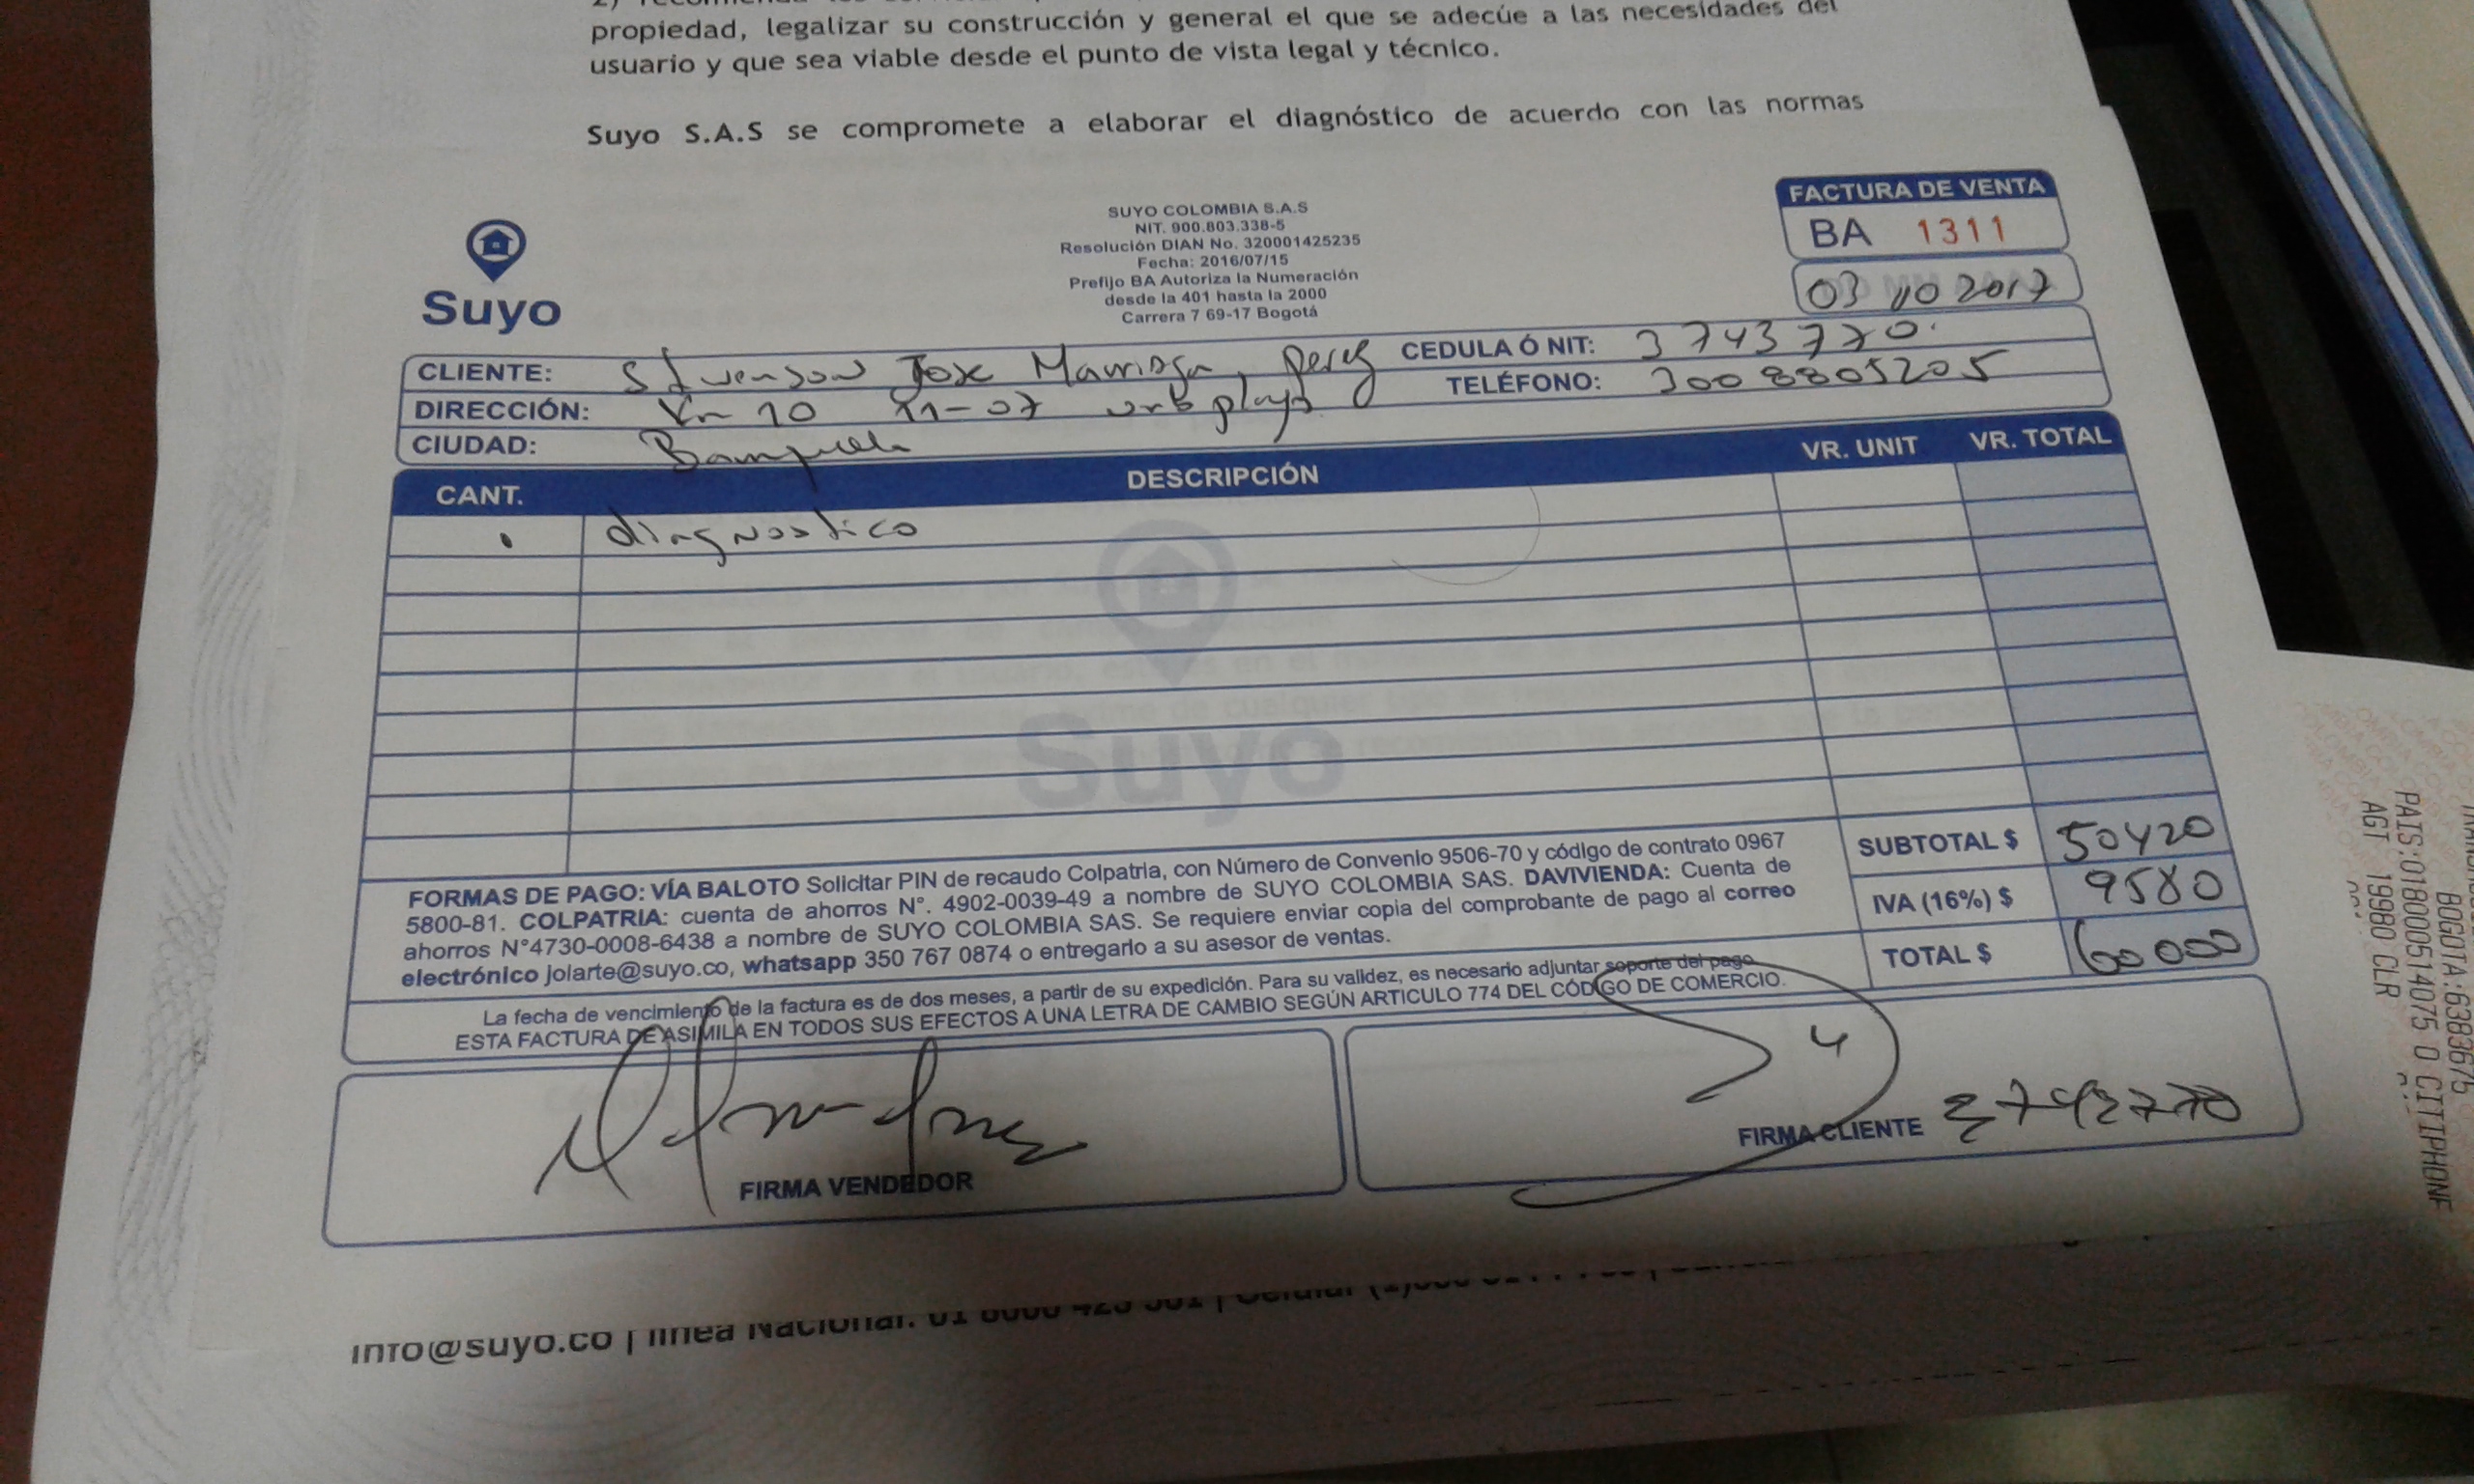 propiedad, legalizar su construcción y general el que se adecúe a las necesidades del
usuario y que sea viable desde el punto de vista legal y técnico.
Suyo S.A.S se compromete a elaborar el diagnóstico de acuerdo con las normas
Suyo
SUYO COLOMBIA S.A.S
NIT. 900.803.338-5
Resolución DIAN No. 320001425235
Fecha: 2016/07/15
Prefijo BA Autoriza la Numeración
desde la 401 hasta la 2000
Carrera 7 69-17 Bogotá
FACTURA DE VENTA
BA 1311
03 10 2017
CLIENTE: Stivenson Jose Perez CEDULA Ó NIT: 3743770
DIRECCIÓN: Kr 10 11-07 urb playa TELÉFONO: 3008805205
CIUDAD:
CANT. DESCRIPCIÓN VR. UNIT VR. TOTAL
diagnostico
Suyo
FORMAS DE PAGO: VÍA BALOTO Solicitar PIN de recaudo Colpatria, con Número de Convenio 9506-70 y código de contrato 0967
5800-81. COLPATRIA: cuenta de ahorros N°. 4902-0039-49 a nombre de SUYO COLOMBIA SAS. DAVIVIENDA: Cuenta de
ahorros N°4730-0008-6438 a nombre de SUYO COLOMBIA SAS. Se requiere enviar copia del comprobante de pago al correo
electrónico jolarte@suyo.co, whatsapp 350 767 0874 o entregarlo a su asesor de ventas.
SUBTOTAL $ 50420
IVA (16%) $ 9580
TOTAL $ 60000
La fecha de vencimiento de la factura es de dos meses, a partir de su expedición. Para su validez, es necesario adjuntar soporte del pago
ESTA FACTURA DE ASIMILA EN TODOS SUS EFECTOS A UNA LETRA DE CAMBIO SEGÚN ARTICULO 774 DEL CÓDIGO DE COMERCIO.
FIRMA VENDEDOR
FIRMA CLIENTE 3743770
info@suyo.co | línea Nacional: 01 8000 423 301 | Celular
BOGOTA:6383675
PAIS:018000514075 O CITIPHONE
AGT 19980 CLR